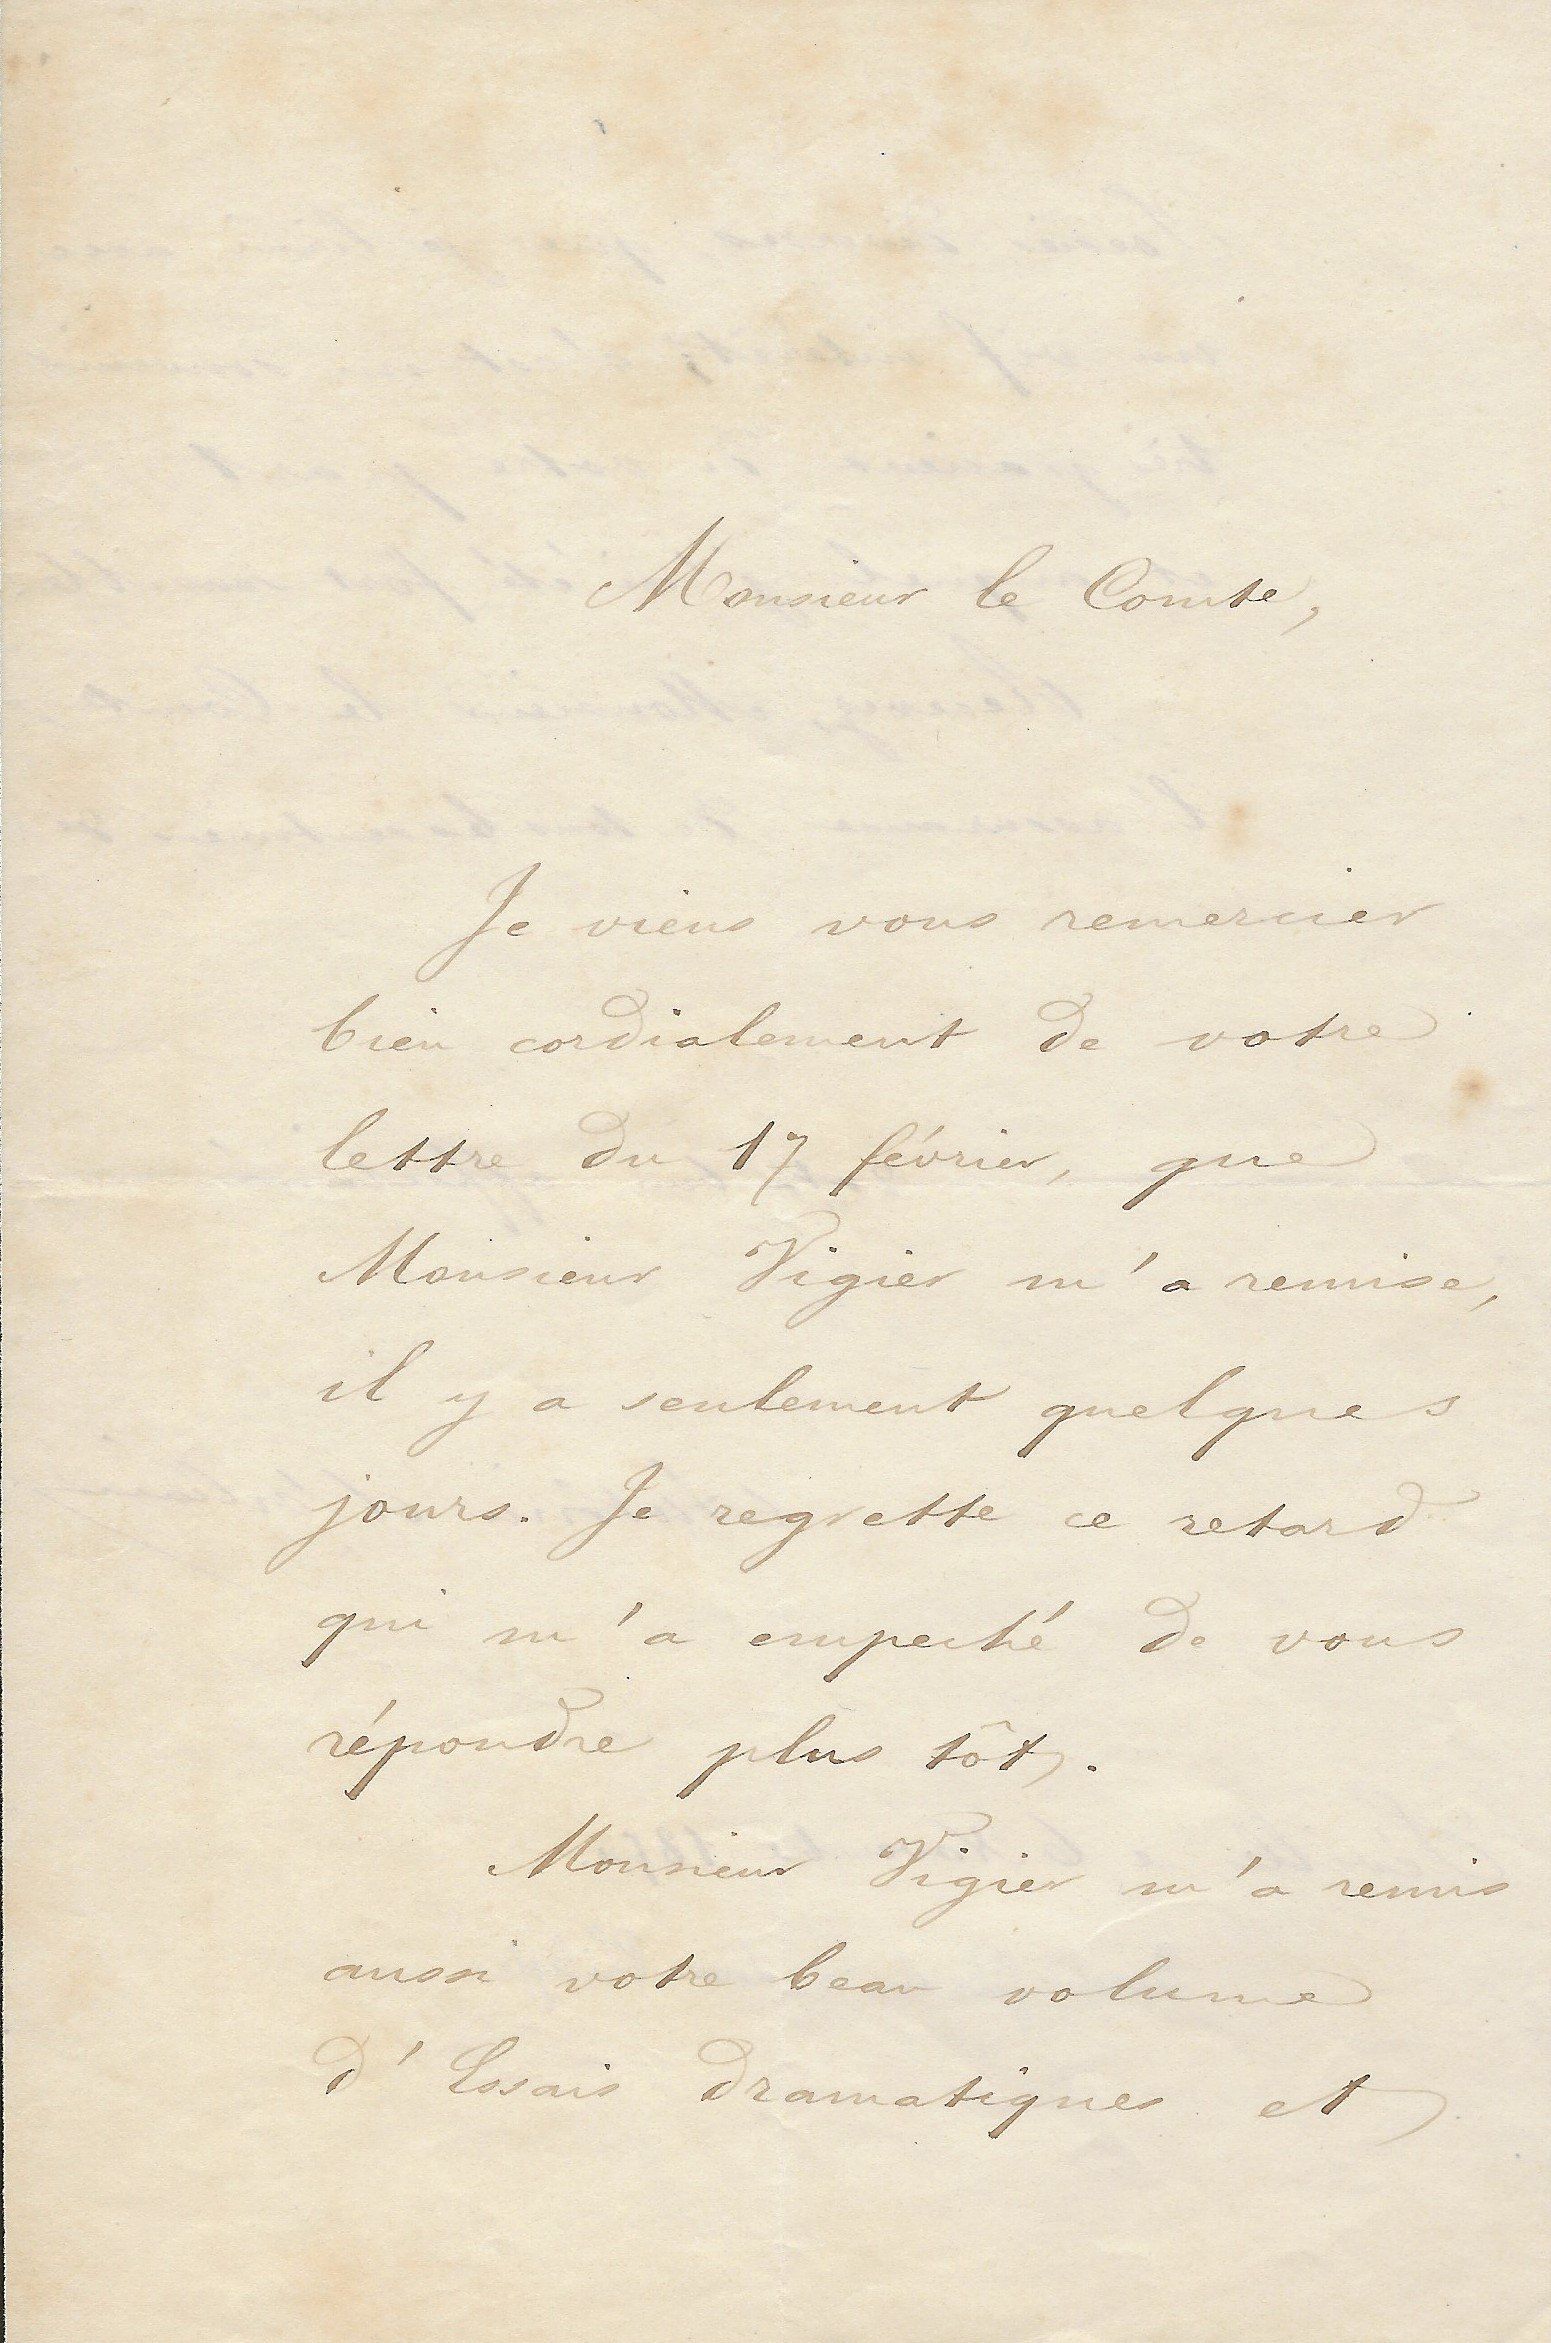 Monsieur le Comte,
Je viens vous remercier
bien cordialement de votre
lettre du 17 février, que
Monsieur Vigier m'a remise,
il y a seulement quelques
jours. Je regrette ce retard
qui m'a empeché de vous
répondre plus tôt.
Monsieur Vigier m'a remis
aussi votre beau volume
d'Essais dramatiques et